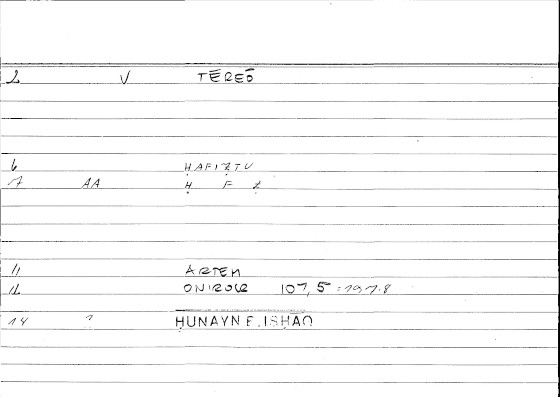 2 V TĒREŌ
6 ḤAFIẒTU
7 AA Ḥ F Ẓ
11 ARTEM
12 ONIROCR 107, 5 : 197.8
14 ? ḤUNAYN E. ISḤAQ